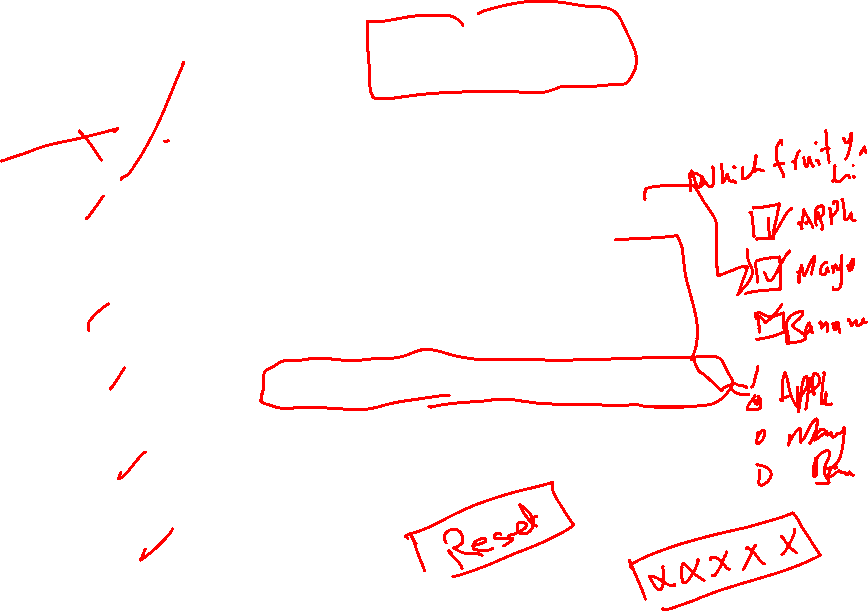 Which fruit Y
Li
Apple
Mango
Banana
Apple
Mang
Ban
Reset
xxxxx